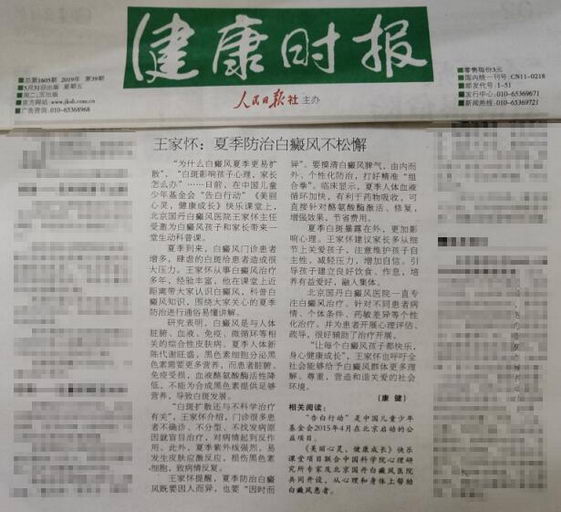 健康时报
人民日报社 主办
■零售每份3元
■国内统一刊号:CN11-0218
■邮发代号:1-51
■发行中心:010-65369671
■新闻热线:010-65369721
王家怀:夏季防治白癜风不松懈
“为什么白癜风夏季更易扩
散”,“白斑影响孩子心理,家长
怎么办”……日前,在中国儿童
少年基金会“告白行动”《美丽
心灵,健康成长》快乐课堂上,
北京国丹白癜风医院王家怀主任
受邀为白癜风孩子和家长带来一
堂生动科普课。
夏季到来,白癜风门诊患者
增多,肆虐的白斑给患者造成很
大压力。王家怀从事白癜风治疗
多年,经验丰富,他在课堂上近
距离带大家认识白癜风,科普白
癜风知识,围绕大家关心的夏季
防治进行通俗易懂讲解。
研究表明,白癜风是与人体
脏腑、血液、免疫、微循环等相
关的综合性皮肤病。夏季人体新
陈代谢旺盛,黑色素细胞分泌黑
色素需要更多营养,而患者脏腑、
免疫受损,血液酪氨酸酶活性降
低,不能为合成黑色素提供足够
营养,导致白斑发展。
“白斑扩散还与不科学治疗
有关”,王家怀介绍,门诊很多患者
不确诊、不分型、不找发病原
因就盲目治疗,对病情起到反作
用。此外,夏季紫外线强烈,易
发生皮肤应激反应,损伤黑色素
细胞,致病情反复。
王家怀提醒,夏季防治白癜
风既要因人而异,也要“因时而
异”。要摸清白癜风脾气,由内而
外、个性化防治,打好精准“组
合拳”。临床显示,夏季人体血液
循环加快,有利于药物吸收,可
直接针对酪氨酸酶激活、修复,
增强效果,节省费用。
夏季白斑暴露在外,更加影
响心理。王家怀建议家长多从细
节上关爱孩子,注意维护孩子自
主性,减轻压力,增加自信。引
导孩子建立良好饮食、作息,培
养有益爱好,融入集体。
北京国丹白癜风医院一直专
注白癜风治疗。针对不同患者病
情、个体条件、药敏差异等个性
化治疗。并为患者开展心理评估、
疏导,很好辅助了治疗开展。
“让每个白癜风孩子都快乐,
身心健康成长”,王家怀也呼吁全
社会能够给予白癜风群体更多理
解、尊重,营造和谐关爱的社会
环境。
(康 健)
相关阅读:
“告白行动”是中国儿童少年
基金会2015年4月在北京启动的公
益项目。
《美丽心灵、健康成长》快乐
课堂项目联合中国科学院心理研
究所专家及北京国丹白癜风医院
共同开设,从心理和身体上帮助
白癜风患者。